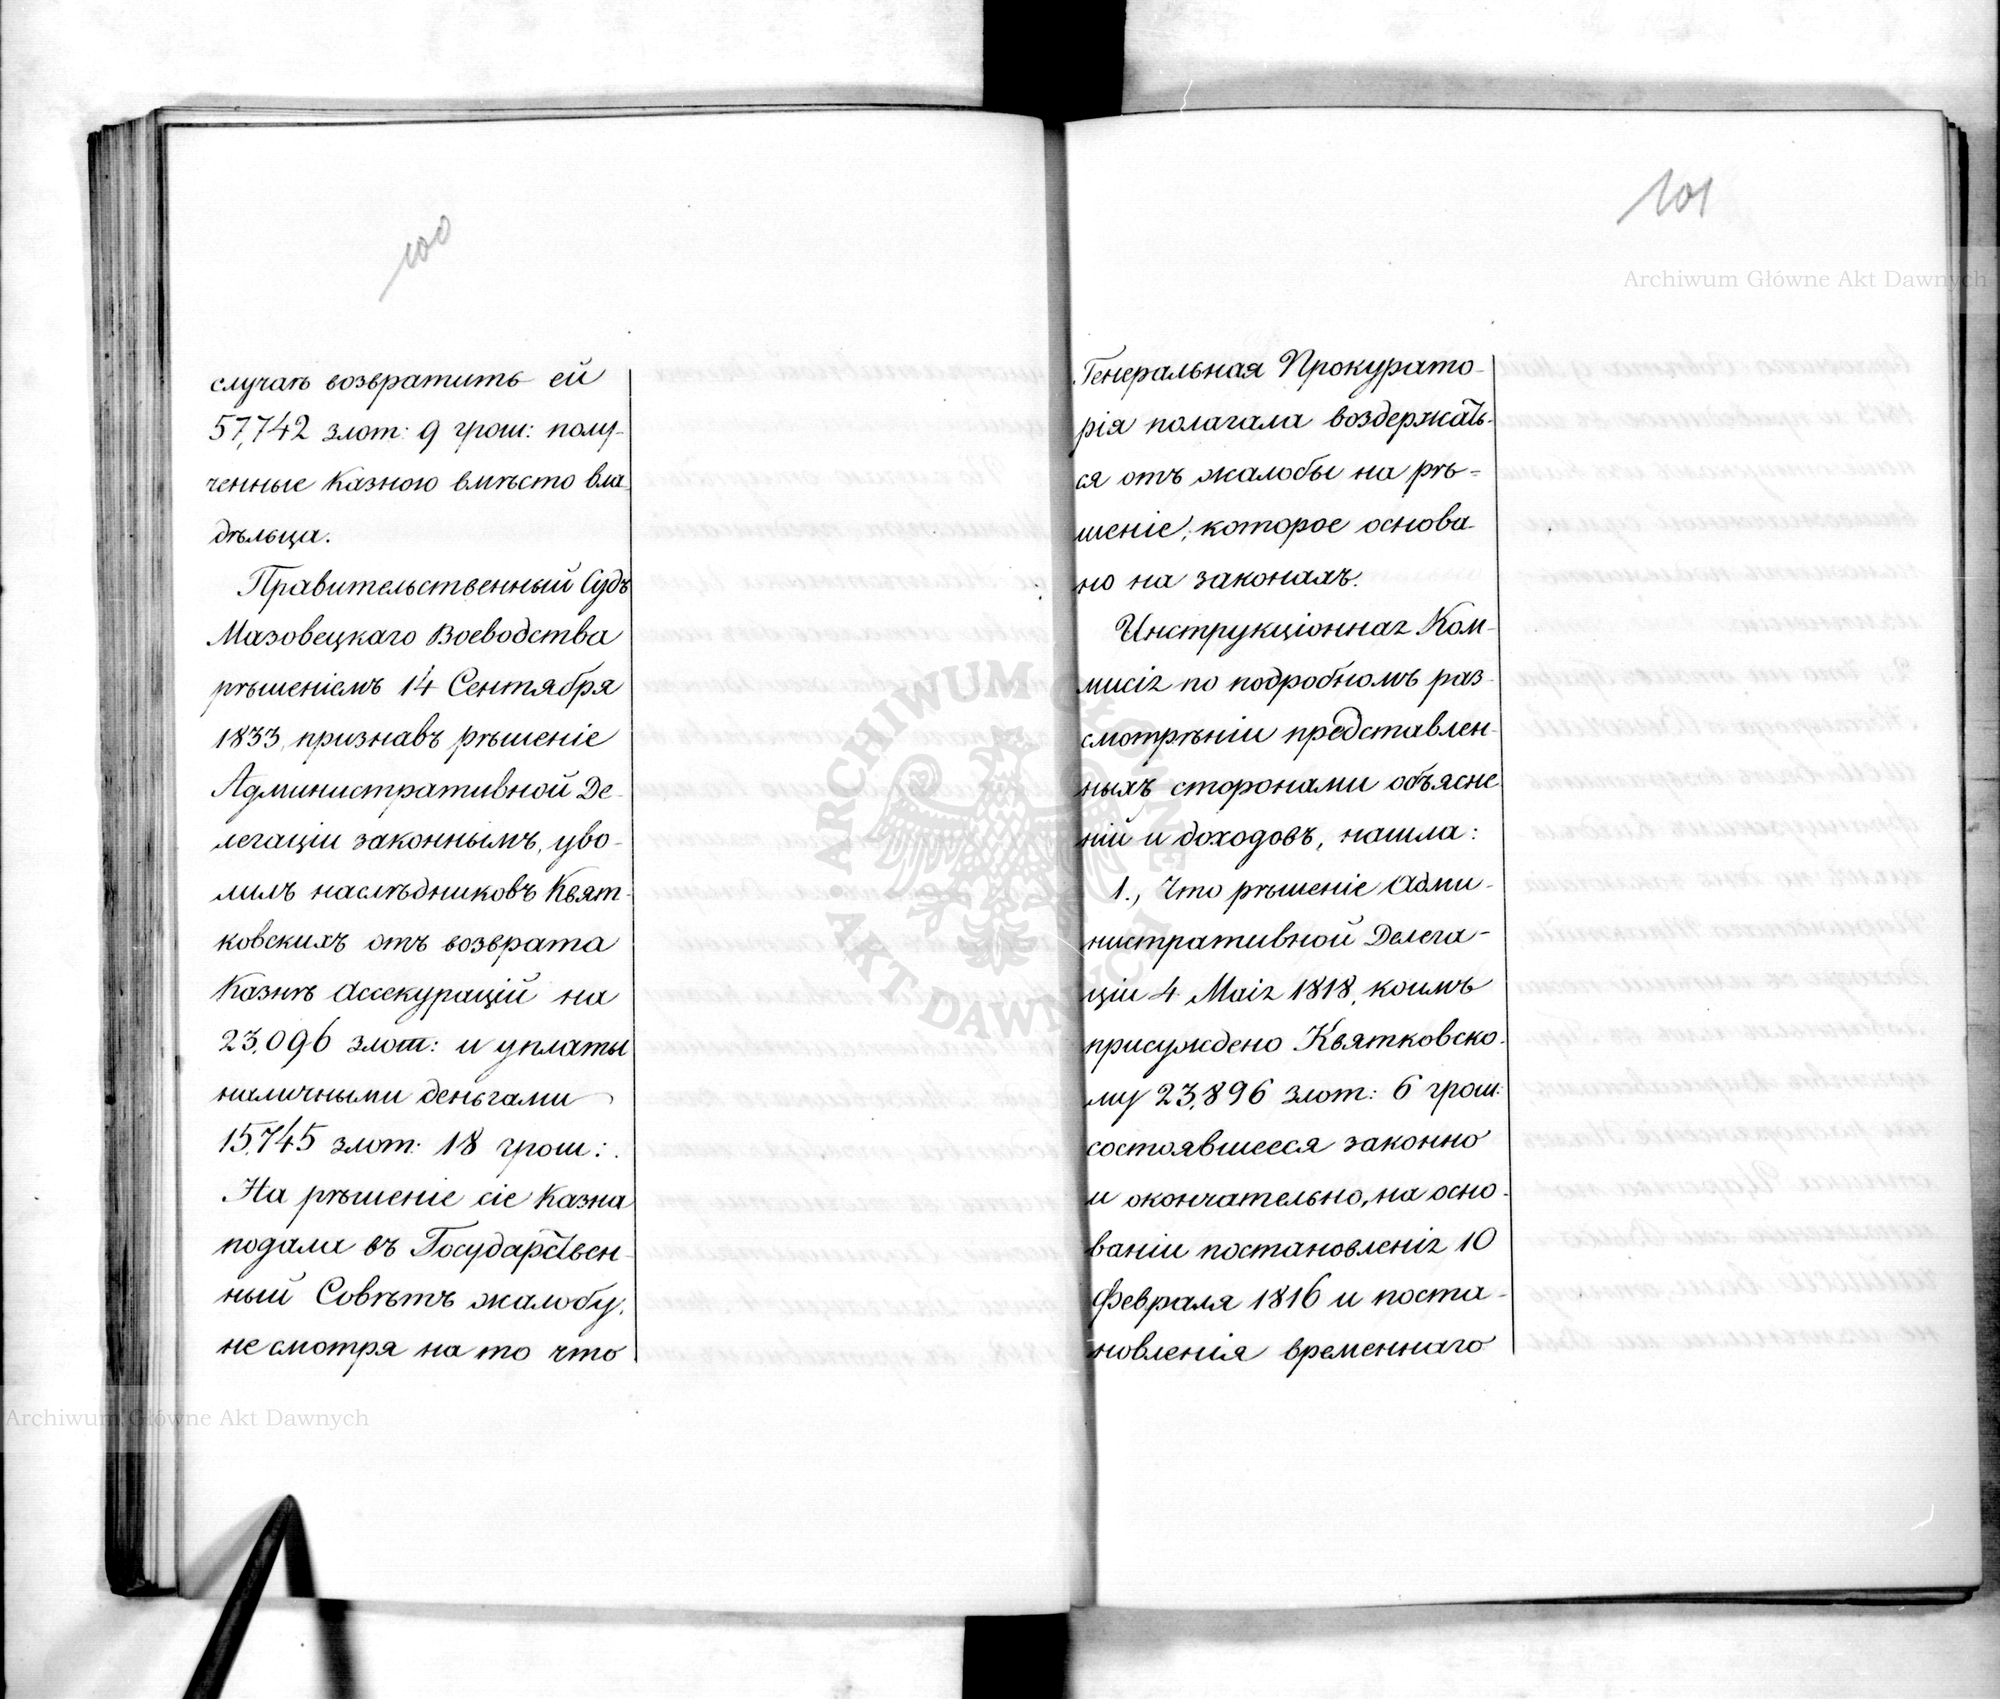 100
случаѣ возвратить ей
57,742 злот: 9 грош: полу-
ченные Казною вмѣсто вла-
дѣльца.
Правительственный Судъ
Мазовецкаго Воеводства
рѣшеніемъ 14 Сентября
1833, признавъ рѣшеніе
Административной Де-
легаціи законнымъ, уво-
лилъ наслѣдниковъ Квят-
ковскихъ отъ возврата
Казнѣ Ассекурацій на
23,096 злот: и уплаты
наличными деньгами
15,745 злот: 18 грош:.
На рѣшеніе сіе Казна
подала въ Государствен-
ный Совѣтъ жалобу,
не смотря на то что
101
Генеральная Прокурато-
рія полагала воздержать-
ся отъ жалобы на рѣ-
шеніе, которое основа-
но на законахъ.
Инструкціонная Ком-
мисія по подробномъ раз-
смотрѣніи представлен-
ныхъ сторонами объясне
ній и доходовъ, нашла:
1., Что рѣшеніе Адми-
нистративной Делега-
ціи 4 Маія 1818, коимъ
присуждено Квятковско-
му 23,896 злот: 6 грош:
состоявшееся законно
и окончательно, на осно-
ваніи постановленія 10
Февраля 1816 и поста-
новленія временнаго
Archiwum Główne Akt Dawnych
Archiwum Główne Akt Dawnych
ARCHIWUM GŁÓWNE AKT DAWNYCH